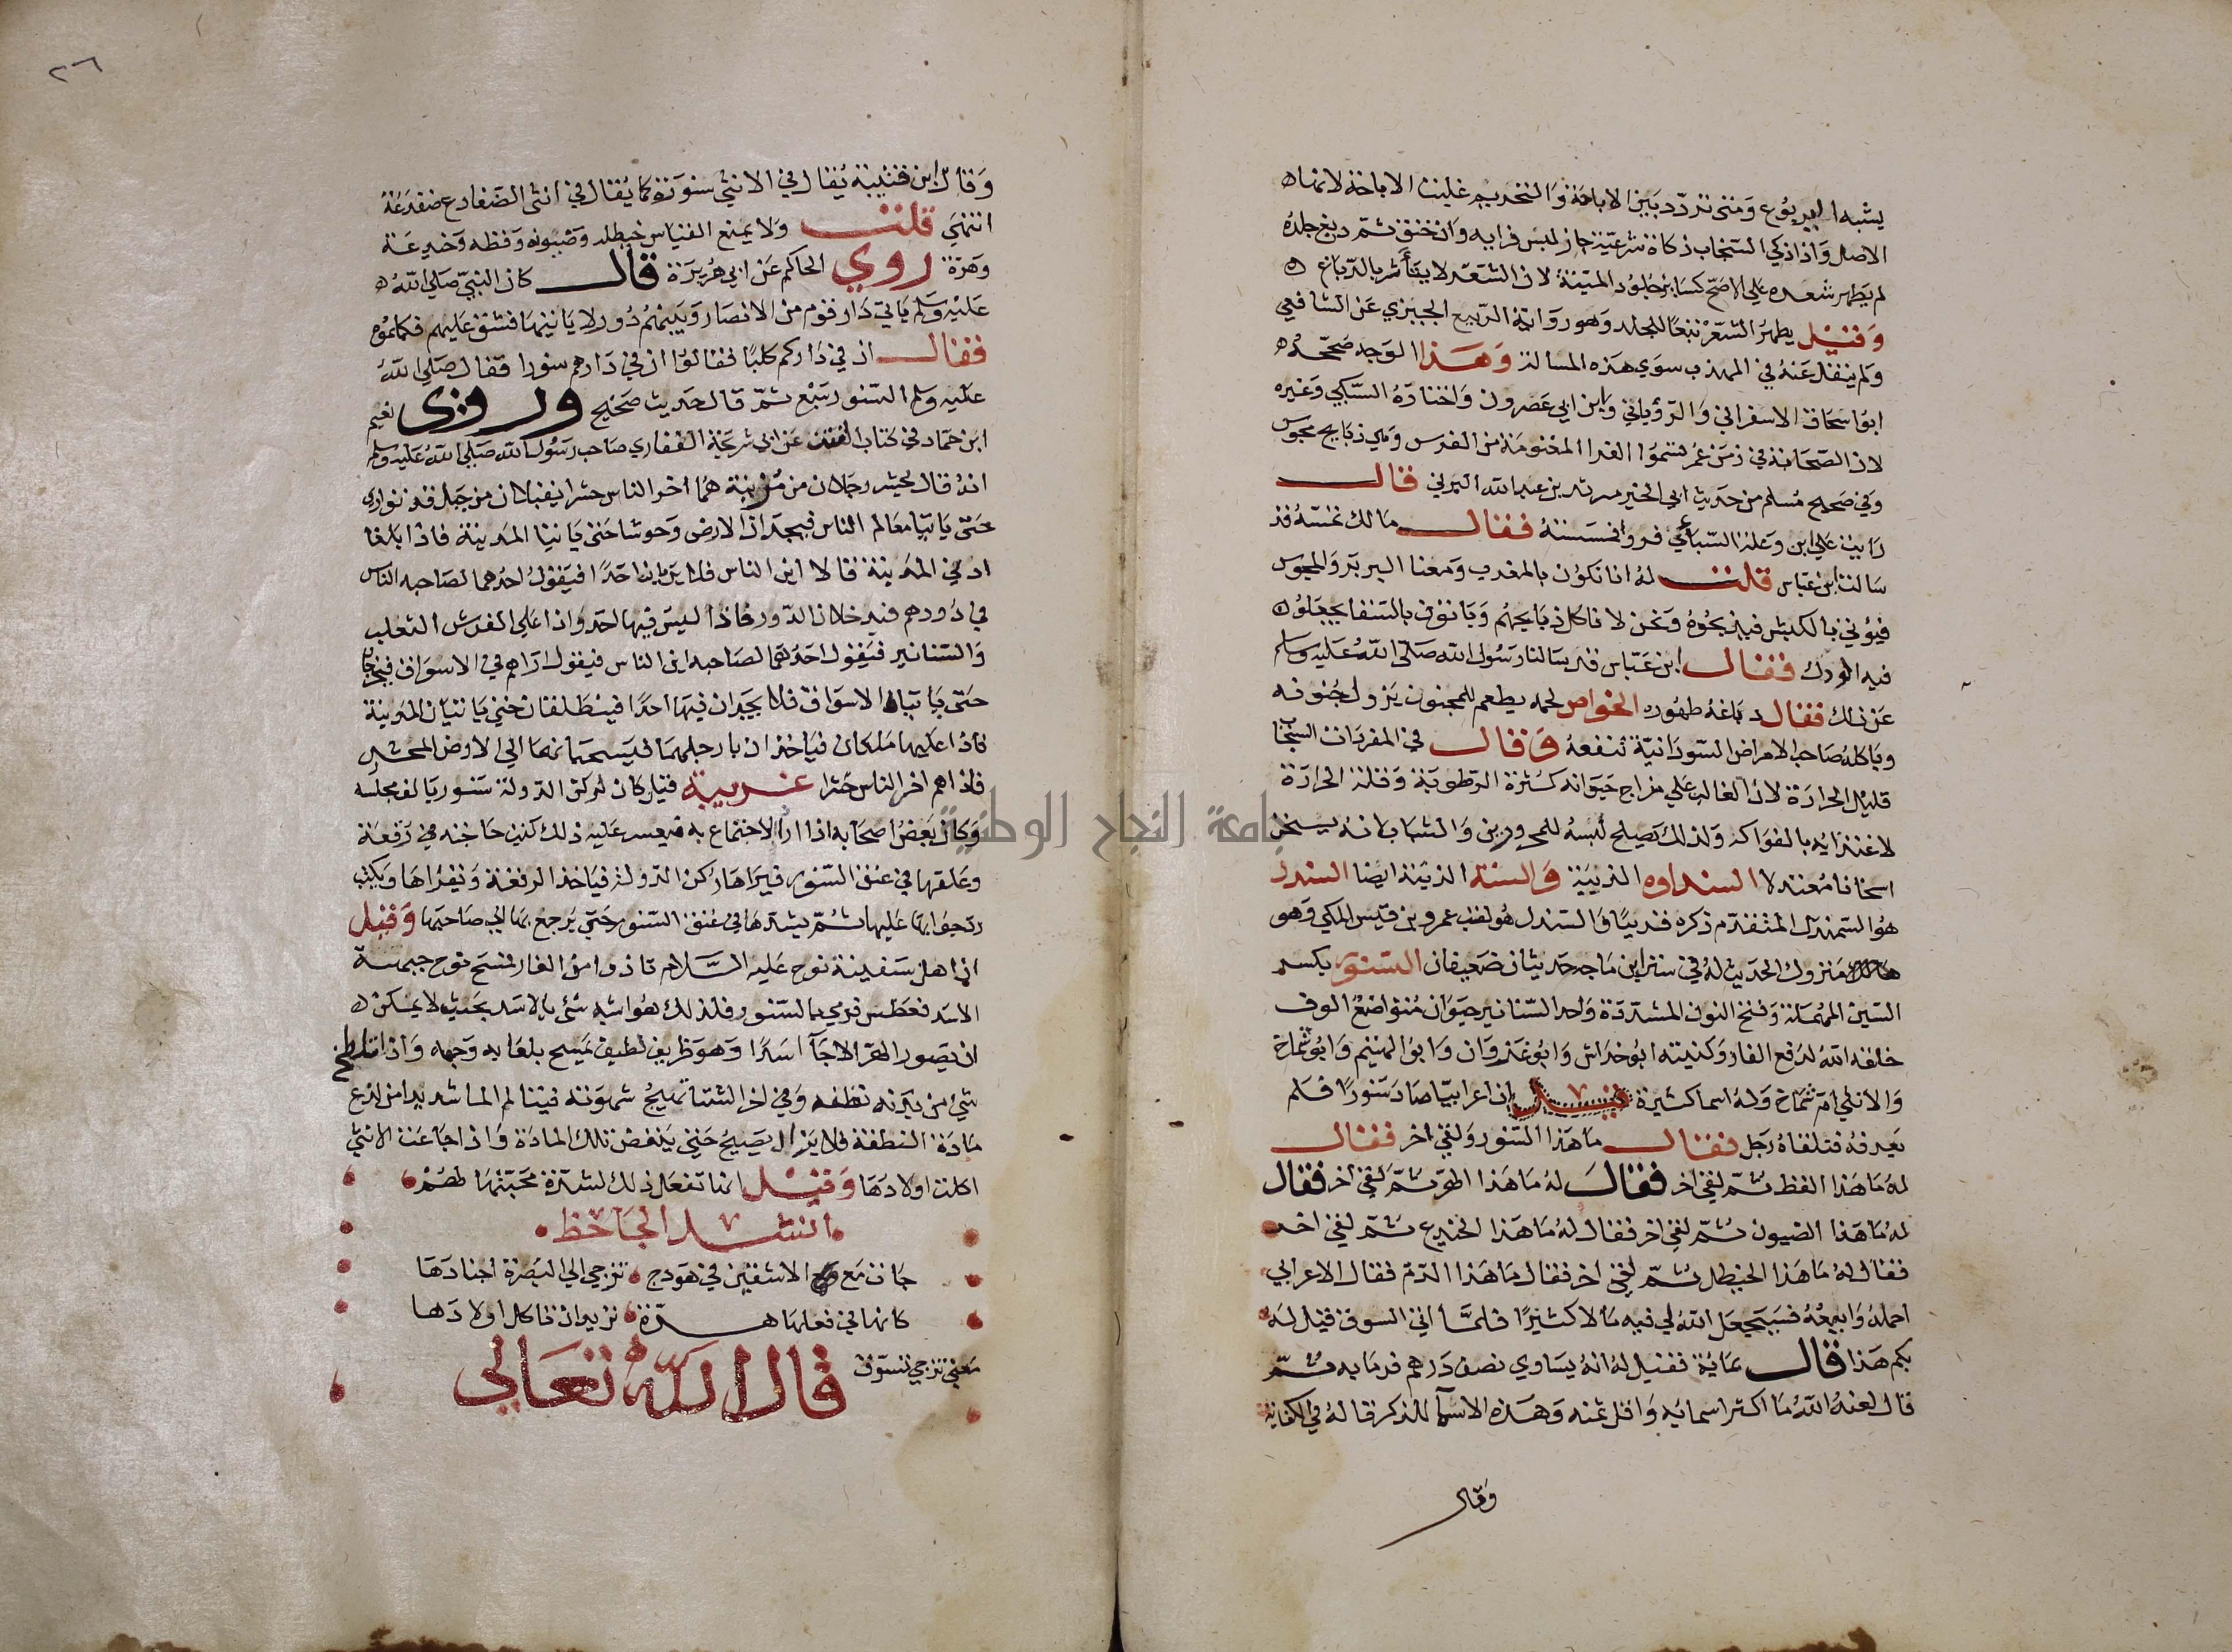 يشبه اليربوع ومتى تردد بين الاباحة والتحريم غلبت الاباحة لانها
الاصل واذا ذكي السنجاب ذكاة شرعية جاز لبس فرايه وان خنق ثم دبغ جلده
لم يطهر شعره علي الاصح كساير جلود الميتة لان الشعر لا يتأثر بالدباغ
وقيل يطهر الشعر تبعا للجلد وهو رواية الربيع الجيزي عن الشافعي
ولم ينقل عنه في المهذب سوي هذه المسالة وهذا الوجه صححه
ابو اسحاق الاسفراني والرؤياني وابن ابي عصرون واختاره السبكي وغيره
لان الصحابة في زمن عمر قسموا الفرا المغنومة من الفرس وهي ذبايح مجوس
وفي صحيح مسلم من حديث ابي الخير مرثد بن عبد الله اليزني قال
رايت علي ابن وعلة السباعي فروا فمسسته فقال مالك تمسه قد
سالت ابن عباس قلت له انا نكون بالمغرب ومعنا البربر والمجوس
فيؤتي بالكبش فيذبحوه ونحن لا ناكل ذبايحهم وياتوني بالسقا يجعلون
فيه الودك فقال ابن عباس قد سالنا رسول الله صلي الله عليه وسلم
عن ذلك فقال دباغه طهوره الخواص لحمه يطعم للمجنون يزول جنونه
وياكله صاحب الامراض السودانية تنفعه وقال في المفردات السنجاب
قليل الحرارة لان الغالب علي مزاج حيوانه كثرة الرطوبة وقلة الحرارة
لاغتذايه بالفواكه ولذلك يصلح لبسه للمحرورين والشباب لانه يسخن
اسخانا معتدلا السنداوه الذيبة والسنه الذيبة ايضا السندل
هو السمندل المتقدم ذكره قريبا والسندل هو لقب عمرو بن قيس المكي وهو
متروك الحديث له في سنن ابن ماجه حديثان ضعيفان السنور بكسر
السين المهملة وفتح النون المشددة واحد السنانير حيوان متواضع الوف
خلقه الله لدفع الفار وكنيته ابو خداش وابو غزوان وابو الهيثم وابو شماخ
والانثي ام شماخ وله اسما كثيرة قيل ان اعرابيا صاد سنورا فلم
يعرفه فتلقاه رجل فقال ما هذا السنور ولقي اخر فقال
له ما هذا القط ثم لقي اخر فقال له ما هذا الهر ثم لقي اخر فقال
له ما هذا الضيون ثم لقي اخر فقال له ما هذا الخيدع ثم لقي اخر
فقال له ما هذا الخيطل ثم لقي اخر فقال ما هذا الدم فقال الاعرابي
احمله وابيعه فسيجعل الله لي فيه مالا كثيرا فلما أتي السوق قيل له
بكم هذا قال بماية فقيل له انه يساوي نصف درهم فرما به ثم
قال لعنه الله ما اكثر اسمائه واقل ثمنه وهذه الاسما للذكر قاله في الكفاية
وقال
٢٦
وقال ابن قتيبة يقال في الانثي سنورة كما يقال في انثى الضفادع ضفدعة
انتهي قلت ولا يمنع القياس خيطله وضيونه وقطه وخيدعة
وهرة روي الحاكم عن ابي هريرة قال كان النبي صلي الله
عليه وسلم ياتي دار قوم من الانصار وبينهم دور لا ياتيها فشق عليهم فكلموه
فقال ان في داركم كلبا فقالوا ان في دارهم سنورا فقال صلي الله
عليه وسلم السنور سبع ثم قال حديث صحيح وروي نعيم
ابن حماد في كتاب الفتن عن ابي شريحة الغفاري صاحب رسول الله صلي الله عليه وسلم
انه قال يحشر رجلان من مزينة هما اخر الناس حشرا يقبلان من جبل قد تواري
حتي ياتيا معالم الناس فيجدان الارض وحوشا حتي ياتيا المدينة فاذا بلغا
ادني المدينة قالا اين الناس فلا يريان احدا فيقول احدهما لصاحبه الناس
في دورهم فيدخلان الدور فاذا ليس فيها احد واذا علي الفرش الثعلب
والسنانير فيقول احدهما لصاحبه اين الناس فيقول اراهم في الاسواق فيخرجان
حتى ياتيا الاسواق فلا يجدان فيها احدا فينطلقان حتي ياتيان المدينة
فاذا عليها ملكان فياخذان بارجلهما فيسحبانهما الي الارض المحشر
فاذا هما اخر الناس حشرا غريبة قيل كان لركن الدولة سنور يالف مجلسه
وكان بعض اصحابه اذا اراد الاجتماع به فيعسر عليه ذلك كتب حاجته في رقعة
وعلقها في عنق السنور فيراها ركن الدولة فياخذ الرقعة ويقراها ويكتب
رد جوابها عليها ثم يشدها في عنق السنور حتي يرجع بها الي صاحبها وقيل
ان اهل سفينة نوح عليه السلام تاذوا من الفار فمسح نوح جبهة
الاسد فعطس فرمي بالسنور فلذلك هو اشبه شئ بالاسد بحيث لا يمكن
ان يصور الهر الا جآ اسدا وهو ظريف لطيف يمسح بلعابه وجهه واذا تلطخ
شئ من بدنه نظفه وفي اخر الشتا تهيج شهوته فيتالم الما شديدا من لذع
مادة النطفة فلا يزال يصيح حتي ينفض تلك المادة واذا جاعت الانثي
اكلت اولادها وقيل انما تفعل ذلك لشدة محبتها لهم
انشد الجاحظ
جات مع الاشقين في هودج تزجي الي البصرة اجنادها
كانها في فعلها هرة تريد ان تاكل اولادها
معني تزجي تسوق قال الله تعالي
جامعة النجاح الوطنية